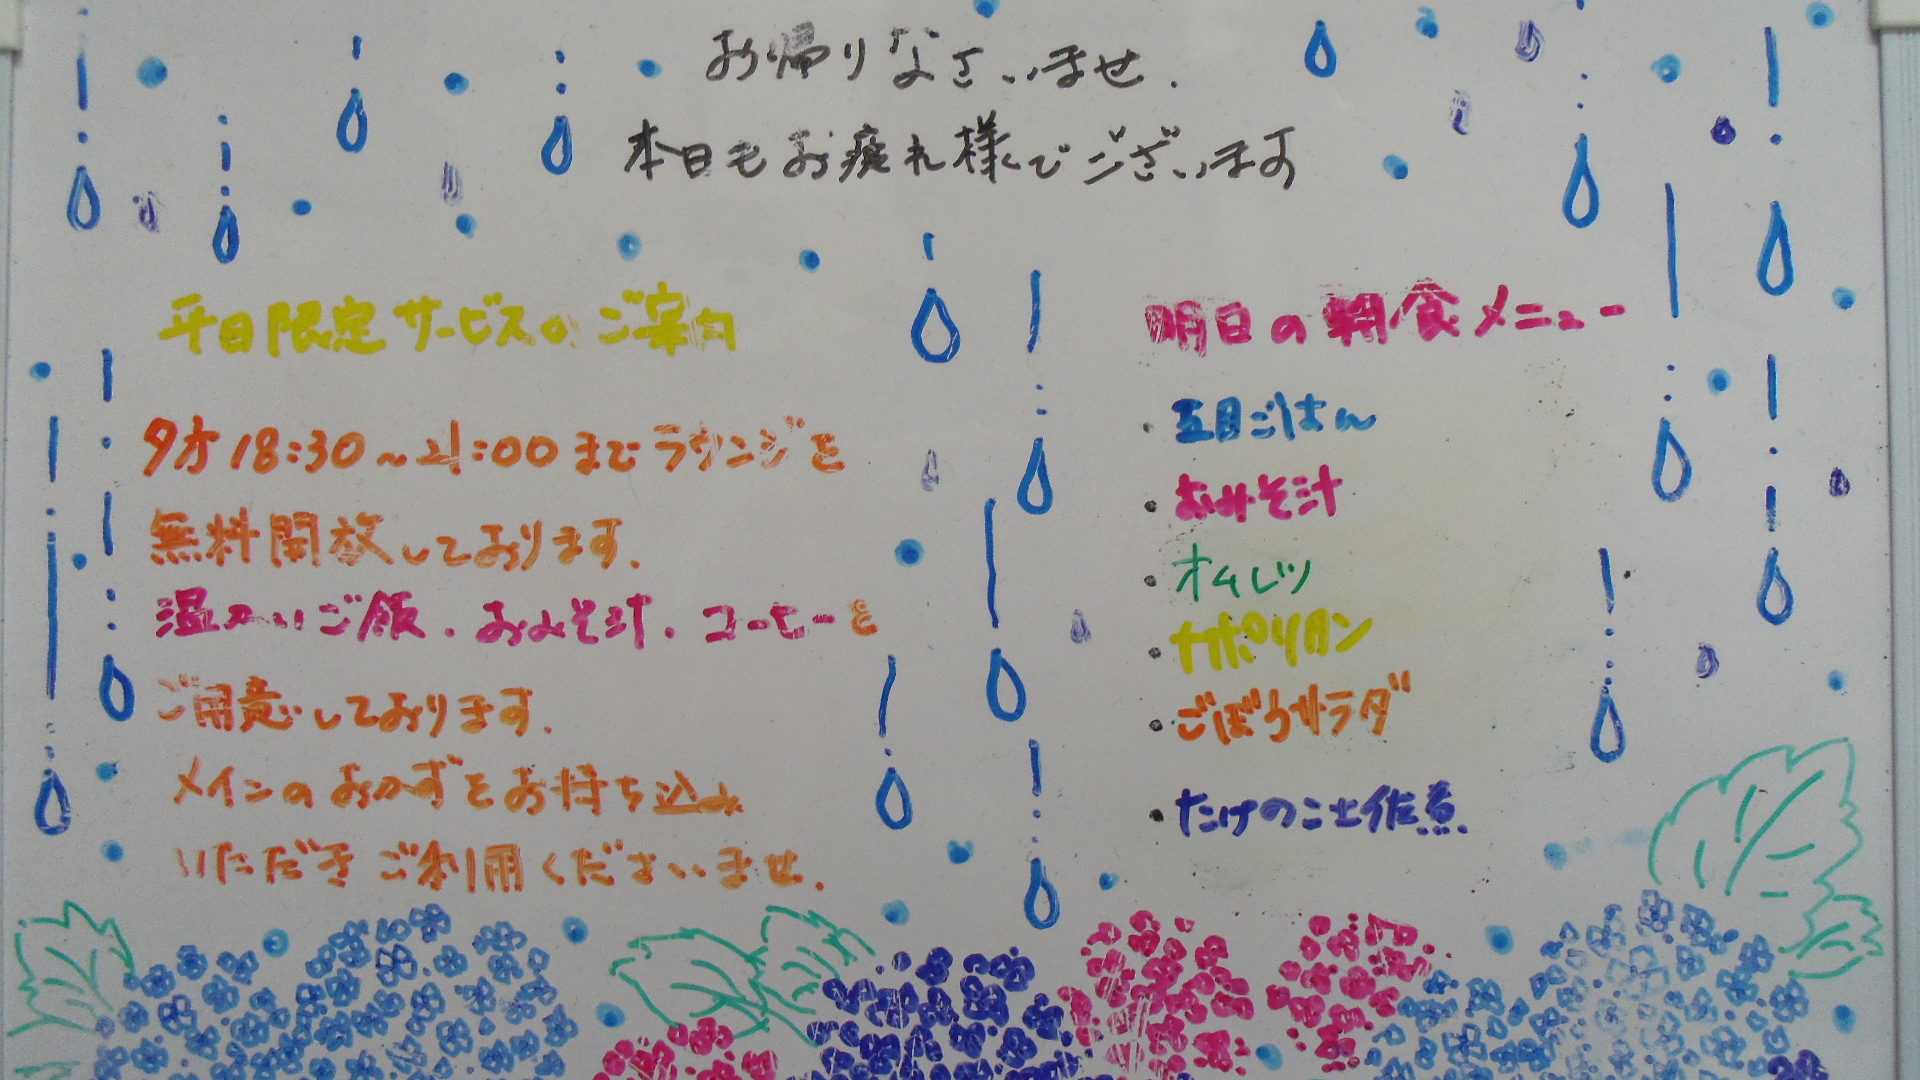 お帰りなさいませ.
本日もお疲れ様でございます
平日限定サービスのご案内
夕方18:30～21:00までラウンジを
無料開放しております.
温かいご飯.おみそ汁.コーヒーを
ご用意しております.
メインのおかずをお持ち込み
いただきご利用くださいませ.
明日の朝食メニュー
・五目ごはん
・おみそ汁
・オムレツ
・ナポリタン
・ごぼうサラダ
・たけのこ土佐煮